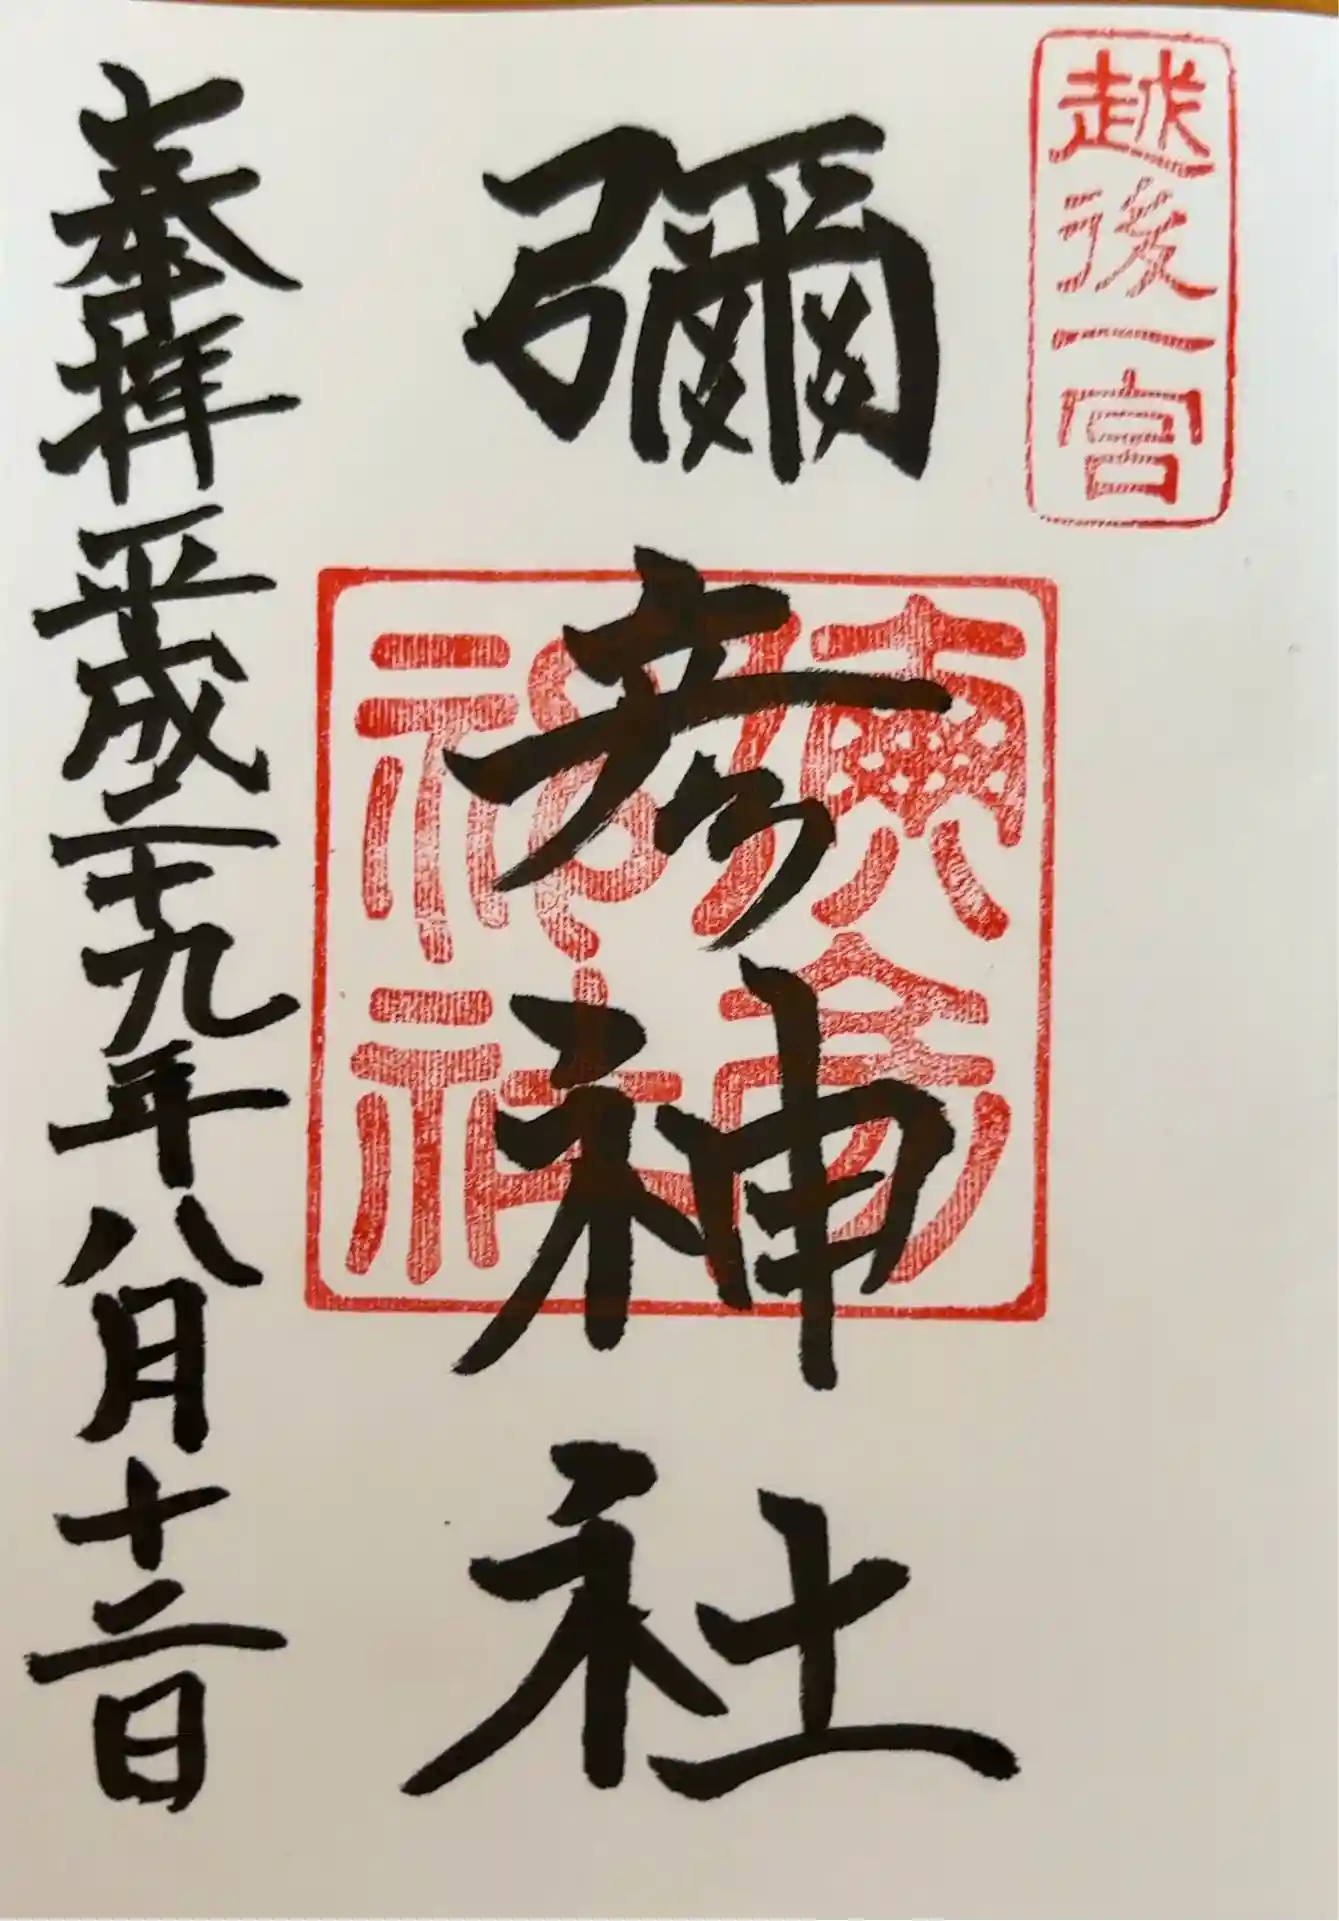 越後一宮
彌彦神社
奉拝 平成二十九年八月十二日